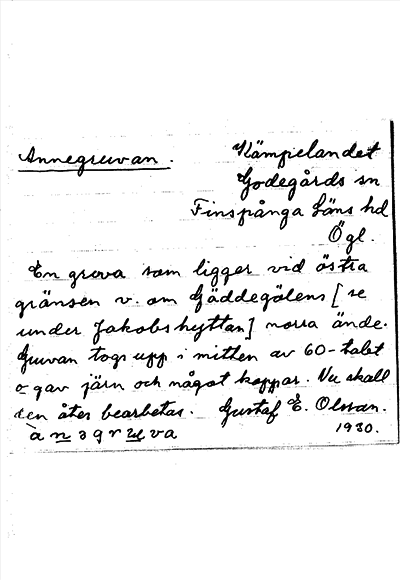 Annegruvan.
Kämpelandet
Godegårds sn
Finspånga Läns hd
Ögl.
En gruva som ligger vid östra
gränsen v. om Gäddegölens [se
under Jakobshyttan] norra ände.
Gruvan togs upp i mitten av 60-talet
o gav järn och något koppar. Nu skall
den åter bearbetas. Gustaf E. Olsson.
1930.